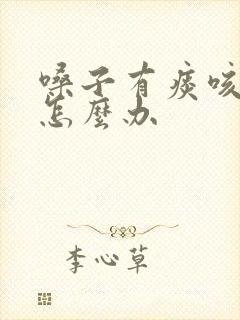 嗓子有痰咳
怎麼办
李心草